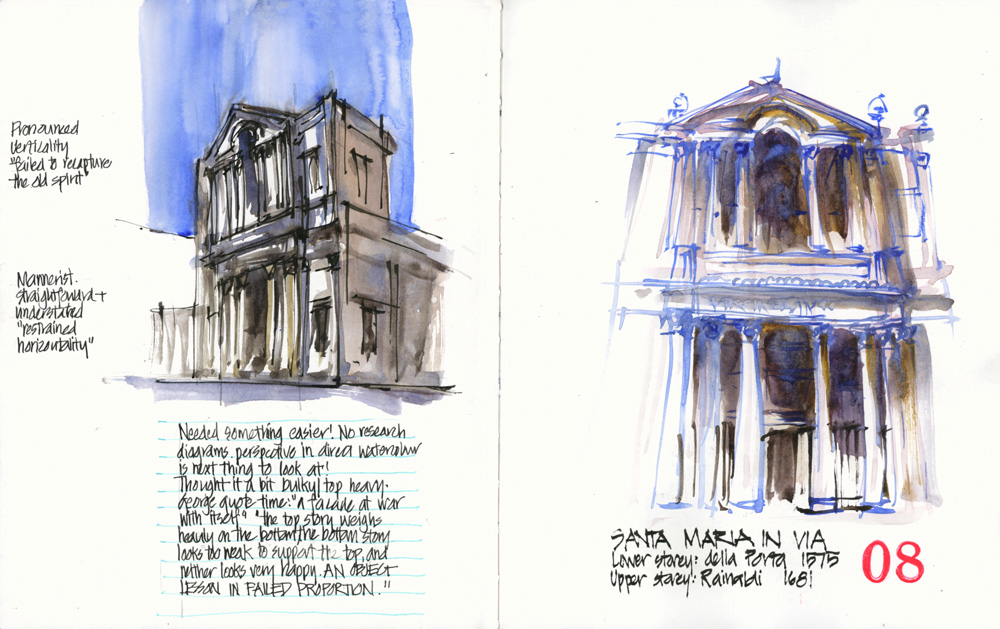 Pronounced
verticality
"failed to recapture
the old spirit"
Mannerist.
straightforward +
understated
"restrained
horizontality"
Needed something easier! No research
diagrams. perspective in direct watercolour
is next thing to look at!
Thought it a bit bulky/top heavy.
George quote time: "a facade at war
with itself" "the top story weighs
heavily on the bottom, the bottom story
looks too weak to support the top, and
neither looks very happy. AN OBJECT
LESSON IN FAILED PROPORTION."
SANTA MARIA IN VIA
Lower storey: della Porta 1575
Upper storey: Rainaldi 1681
08